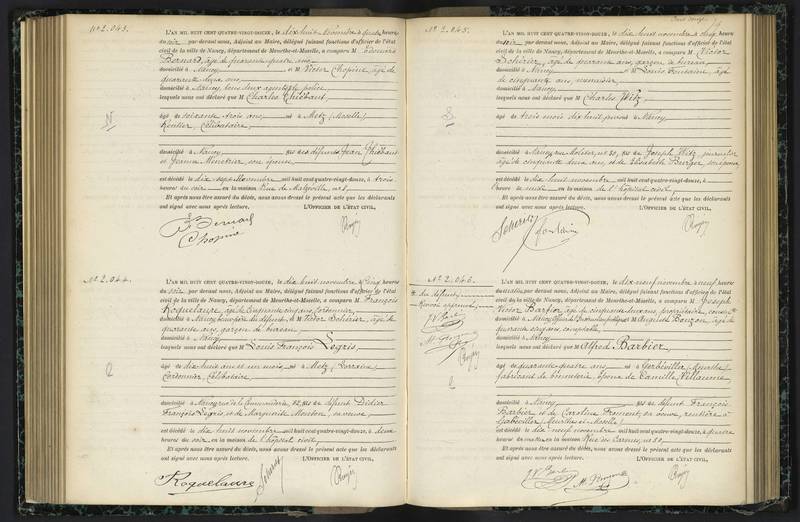 N° 2.043.
L'AN MIL HUIT CENT QUATRE-VINGT-DOUZE, le dix huit novembre à quatre heures
du soir par devant nous, Adjoint au Maire, délégué faisant fonctions d'officier de l'état
civil de la ville de Nancy, département de Meurthe-et-Moselle, a comparu M. Edouard
Bernard, âgé de quarante quatre ans
domicilié à Nancy et M. Victor Chopine, âgé de
quarante deux ans,
domicilié à Nancy, tous deux agents de police
lesquels nous ont déclaré que M Charles Thiébaut,
âgé de soixante trois ans, né à Metz (Moselle)
Rentier, Célibataire,
domicilié à Nancy fils des défunts Jean Thiébaut
et Jeanne Menetrier son épouse,
est décédé le dix sept novembre mil huit cent quatre-vingt-douze, à trois
heures du soir en sa maison Rue de Malzéville, n° 1,
Et après nous être assuré du décès, nous avons dressé le présent acte que les déclarants
ont signé avec nous après lecture. L'OFFICIER DE L'ÉTAT CIVIL,
Bernard
Chopine
N° 2.044.
L'AN MIL HUIT CENT QUATRE-VINGT-DOUZE, le dix huit novembre à cinq heures
du soir, par devant nous, Adjoint au Maire, délégué faisant fonctions d'officier de l'état
civil de la ville de Nancy, département de Meurthe-et-Moselle, a comparu M. François
Roquelaure, âgé de cinquante ans, cordonnier,
domicilié à Nancy, du défunt, et M. Victor Schérier, âgé de
quarante ans, garçon de bureau,
domicilié à Nancy
lesquels nous ont déclaré que M Louis François Legris,
âgé de dix huit ans et un mois né à Metz (Lorraine)
Cordonnier, Célibataire
domicilié à Nancy rue de la Commanderie, 12, fils de défunt Didier
François Legris, et de Marguerite Mouton, sa veuve,
est décédé le dix huit novembre mil huit cent quatre-vingt-douze, à deux
heures du soir, en la maison de l'hôpital civil,
Et après nous être assuré du décès, nous avons dressé le présent acte que les déclarants
ont signé avec nous après lecture. L'OFFICIER DE L'ÉTAT CIVIL,
Roquelaure
N° 2.045.
L'AN MIL HUIT CENT QUATRE-VINGT-DOUZE, le dix huit novembre à cinq heures
du soir par devant nous, Adjoint au Maire, délégué faisant fonctions d'officier de l'état
civil de la ville de Nancy, département de Meurthe-et-Moselle, a comparu M. Victor
Schérier, âgé de quarante ans, garçon de bureau,
domicilié à Nancy et M. Louis Fontaine, âgé
de cinquante ans, menuisier,
domicilié à Nancy,
lesquels nous ont déclaré que M Charles Witz,
âgé de trois mois dix huit jours né à Nancy
domicilié à Nancy rue Molitor, n° 30, fils de Joseph Witz, journalier
âgé de cinquante deux ans, et de Elisabeth Burger son épouse,
est décédé le dix huit novembre mil huit cent quatre-vingt-douze, à
heure du matin en la maison de l'hôpital civil,
Et après nous être assuré du décès, nous avons dressé le présent acte que les déclarants
ont signé avec nous après lecture. L'OFFICIER DE L'ÉTAT CIVIL,
Fontaine
N° 2.046.
L'AN MIL HUIT CENT QUATRE-VINGT-DOUZE, le dix-neuf novembre à neuf heures
du matin, par devant nous, Adjoint au Maire, délégué faisant fonctions d'officier de l'état
civil de la ville de Nancy, département de Meurthe-et-Moselle, a comparu M. Joseph
Victor Barbier, âgé de cinquante deux ans, propriétaire,
domicilié à Nancy et M. Auguste
quarante cinq ans, comptable
domicilié à Nancy
lesquels nous ont déclaré que M Alfred Barbier,
âgé de quarante quatre ans, né à Gerbéviller (Meurthe)
fabricant de bonneterie, époux de Camille Villaume
domicilié à Nancy fils de défunt François
Barbier et de Caroline Froment, sa veuve, rentière à
Gerbéviller (Meurthe et Moselle)
est décédé le dix neuf novembre mil huit cent quatre-vingt-douze, à quatre
heures du matin en sa maison Rue des Carmes, n° 30,
Et après nous être assuré du décès, nous avons dressé le présent acte que les déclarants
ont signé avec nous après lecture. L'OFFICIER DE L'ÉTAT CIVIL,